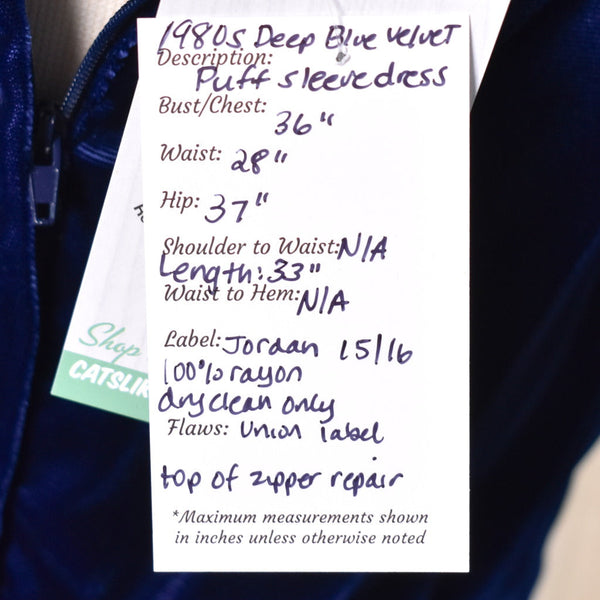 1980s Deep Blue velvet
Description:
Puff sleeve dress
Bust/Chest: 36"
Waist: 28"
Hip: 37"
Shoulder to Waist: N/A
Length: 33"
Waist to Hem: N/A
Label: Jordan 15/16
100% rayon
dry clean only
Flaws: Union label
top of zipper repair
*Maximum measurements shown
in inches unless otherwise noted
Shop
CATSLIK